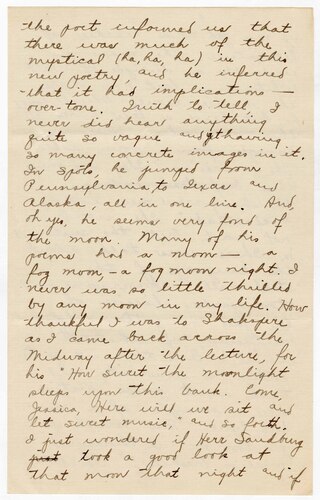 the poet informed us that
there was much of the
mystical (ha, ha, ha) in this
new poetry, and he inferred
that it had implications—
over-tone. Truth to tell, I
never did hear anything
quite so vague and
so many concrete images in it.
In spots, he jumped from
Pennsylvania, to Texas and
Alaska, all in one line. And,
oh yes, he seems very fond of
the moon. Many of his
poems had a moon— a
fog moon, — a fog moon night. I
never was so little thrilled
by any moon in my life. How
thankful I was to Shakspere
as I came back across the
Midway after the lecture, for
his "How sweet the moonlight
sleeps upon this bank. Come,
Jessica, Here will we sit, and
let sweet music," and so forth.
I just wondered if Herr Sandburg
just took a good look at
that moon that night and if